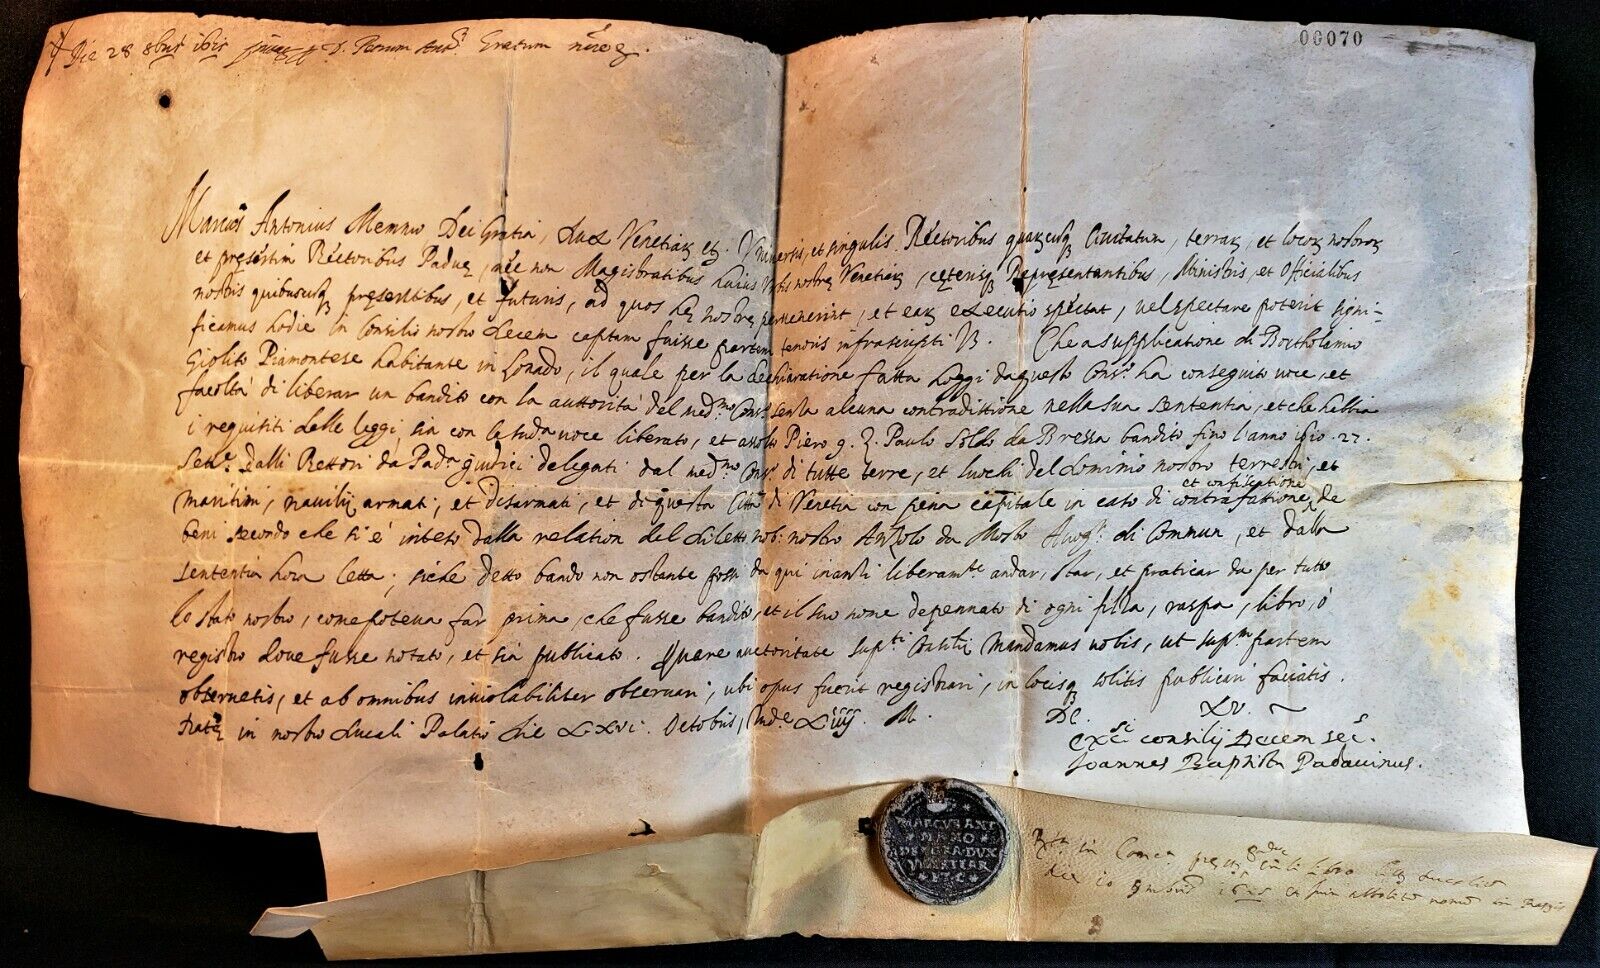 Die 28 8bris 1615 D. Petrum Ant. Gratum
00070
Marcus Antonius Memmo Dei Gratia, Dux Venetiarꝫ etꝫ. Universis, et singulis Rectoribus quarꝫcusqꝫ Civitatum, terrarꝫ, et locorꝫ nostrorꝫ
et presertim Rectoribus Paduę, nec non Magistratibus huius Urbis nostrę Venetiarꝫ, cęterisqꝫ Representantibus, Ministris, et Officialibus
nostris quibuscusqꝫ pręsentibus, et futuris, ad quos hę nostrę pervenerint, et earꝫ executio spectat, vel spectare poterit signi-
ficamus hodie in Consilio nostro Decem captam fuisse partem tenoris infrascripti Vꝫ. Che a supplicatione di Bortholamio
Giolito Piamontese habitante in Lonado, il quale per la dechiaratione fatta hoggi da questo Consº. ha conseguito voce, et
facoltà di liberar un bandito con la auttorità del medmo. Consº. senza alcuna contradittione nella sua sententia, et che habbia
i requisiti delle leggi, sia con la sudta voce liberato, et assolto Piero q. ꝫ. Paulo Soldo da Bressa bandito fino l'anno 1610. 27.
Sette. dalli Rettori da Pada. giudici delegati dal medmo. Consº. di tutte terre, et luochi del dominio nostro terrestri, et
maritimi, navilij armati, et disarmati, et di questa Città di Venetia con pena capitale in caso di contrafattione, et confiscatione de
beni secondo che si è inteso dalla relation del diletto nob: nostro Anzolo da Mosto Avogr. di Commun, et dalla
sententia hora letta; siche detto bando non ostante possi da qui inanti liberamte. andar, star, et praticar da per tutto
lo stato nostro, come poteva far prima, che fusse bandito, et il suo nome depennato di ogni filza, raspa, libro, ò
registro dove fusse notato, et sia publicato. Quare auctoritate supti. Consilij Mandamus vobis, ut supm. partem
observetis, et ab omnibus inviolabiliter observari, ubi opus fuerit registrari, in locisqꝫ solitis publicari faciatis.
Datę in nostro Ducali Palatio Die XXVI. Octobris, Inde XIIIJ. M. DC. XV.
Exci. consilij Decem secs.
Joannes Baptista Padavinus.
MARCVS ANT
MEMO
DEI GRA DVX
VENETIAR
ETC
in Cancia
libro
die 10 1615 nome in